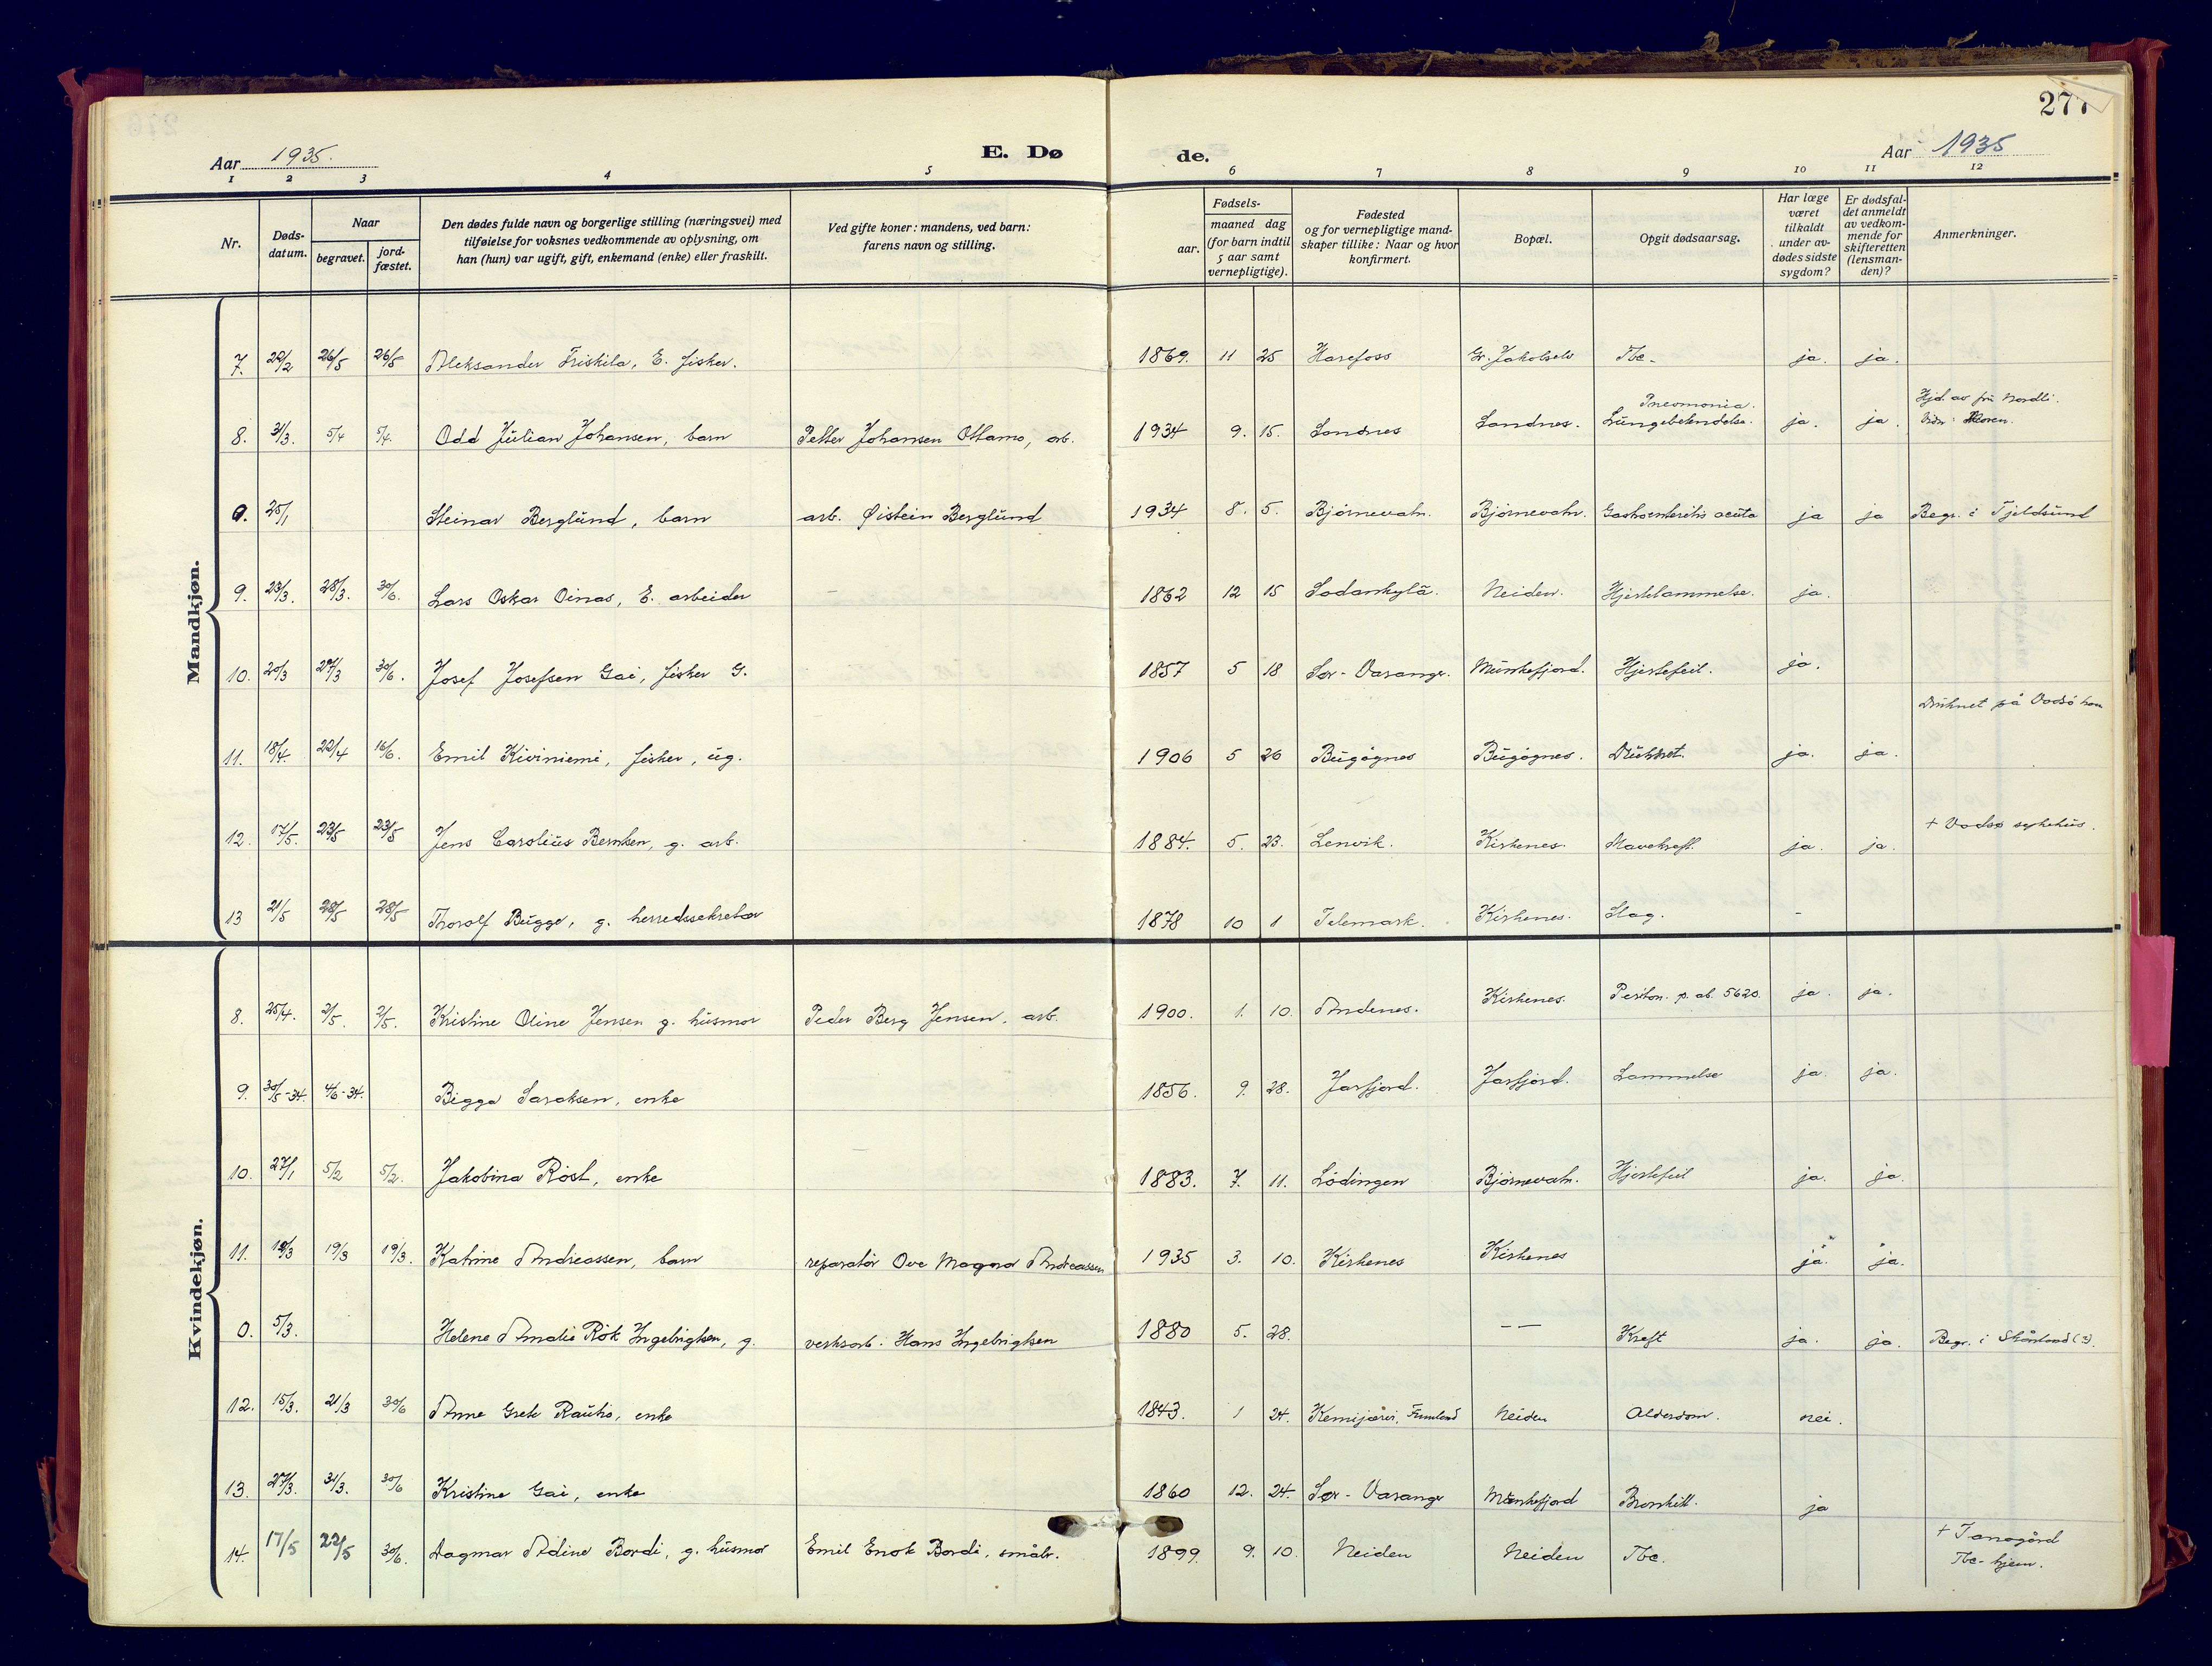 277
Aar 1935. E. Dø de. Aar 1935
1 2 3 4 5 6 7 8 9 10 11 12
Nr. Døds-datum. Naar begravet. jord-fæstet. Den dødes fulde navn og borgerlige stilling (næringsvei) med tilføielse for voksnes vedkommende av oplysning, om han (hun) var ugift, gift, enkemand (enke) eller fraskilt. Ved gifte koner: mandens, ved barn: farens navn og stilling. aar. Fødsels- maaned dag (for barn indtil 5 aar samt vernepligtige). Fødested og for vernepligtige mand-skaper tillike: Naar og hvor konfirmert. Bopæl. Opgit dødsaarsag. Har læge været tilkaldt under av-dødes sidste sygdom? Er dødsfal-det anmeldt av vedkom-mende for skifteretten (lensman-den)? Anmerkninger.
Mandkjøn.
7. 22/2 26/5 26/5 Aleksander Friskila, E. fisker. 1869. 11 25 Harefoss Gr. Jakobselv Tbc. ja. ja.
8. 31/3. 5/4 5/4. Odd Julian Johansen, barn Petter Johansen Ottamo, arb. 1934 9. 15. Sandnes Sandnes. Pneomonia. Lungebetendelse. ja. ja. Hjd. av frü Nordli.
0. 25/1 Steinar Berglund, barn arb. Øistein Berglund 1934 8. 5. Bjørnevatn. Bjørnevatn. Gastroenteritis acuta ja ja Begr. i Tjeldsund
9. 23/3. 28/3. 30/6. Lars Oskar Oinas, E. arbeider 1862 12 15 Sodankylä. Neiden. Hjertelammelse. ja.
10. 20/3 27/3 30/6. Josef Josefsen Gai, fisker G. 1857 5 18 Sør-Varanger. Munkefjord. Hjertefeil. ja.
11. 18/4. 22/4 16/6. Emil Kiviniemi, fisker, ug. 1906 5 26 Bugøynes Bugøynes. Druknet. ja. ja. Druknet på Vadsø havn
12. 17/5. 23/5 23/5 Jens Carolius Berntsen, g. arb. 1884. 5. 23. Lenvik. Kirkenes. Mavekreft. ja. ja. + Vadsø sykehus.
13 21/5 28/5 28/5 Thorolf Bugge, g. herredssekretær 1878 10 1 Telemark. Kirkenes. Slag. -
Kvindekjøn.
8. 25/4. 2/5. 2/5. Kristine Oline Jensen g. husmor Peder Berg Jensen, arb. 1900. 1. 10. Andenes. Kirkenes. Periton. p. ab. 5620. ja. ja.
9. 30/5-34. 4/6-34. Bigga Saraksen, enke 1856. 9. 28. Jarfjord. Jarfjord. Lammelse ja. ja.
10. 27/1 5/2 5/2. Jakobina Röst, enke 1883. 7. 11. Lödingen Bjørnevatn. Hjertefeil ja. ja.
11. 10/3 19/3 19/3. Katrine Andreassen, barn reparatör Ove Magnar Andreassen 1935 3. 10. Kirkenes Kirkenes ja. ja.
0. 5/3. Helene Amalie Rök Ingebrigtsen, g. verksarb. Hans Ingebrigtsen 1880 5. 28. - - Kreft ja. ja. Begr. i Skånland (?).
12. 15/3. 21/3 30/6 Anne Grete Rautio, enke 1843. 1 24. Kemijärvi, Finnland Neiden Alderdom. nei.
13. 27/3. 31/3. 30/6 Kristine Gai, enke 1860 12. 24. Sør-Varanger Munkefjord Bronkitt. ja
14. 17/5 22/5 30/6. Dagmar Adine Bordi, g. husmor Emil Enok Bordi, småbr. 1899. 9. 10. Neiden Neiden Tbc. + Tanagård Tbc-hjem.